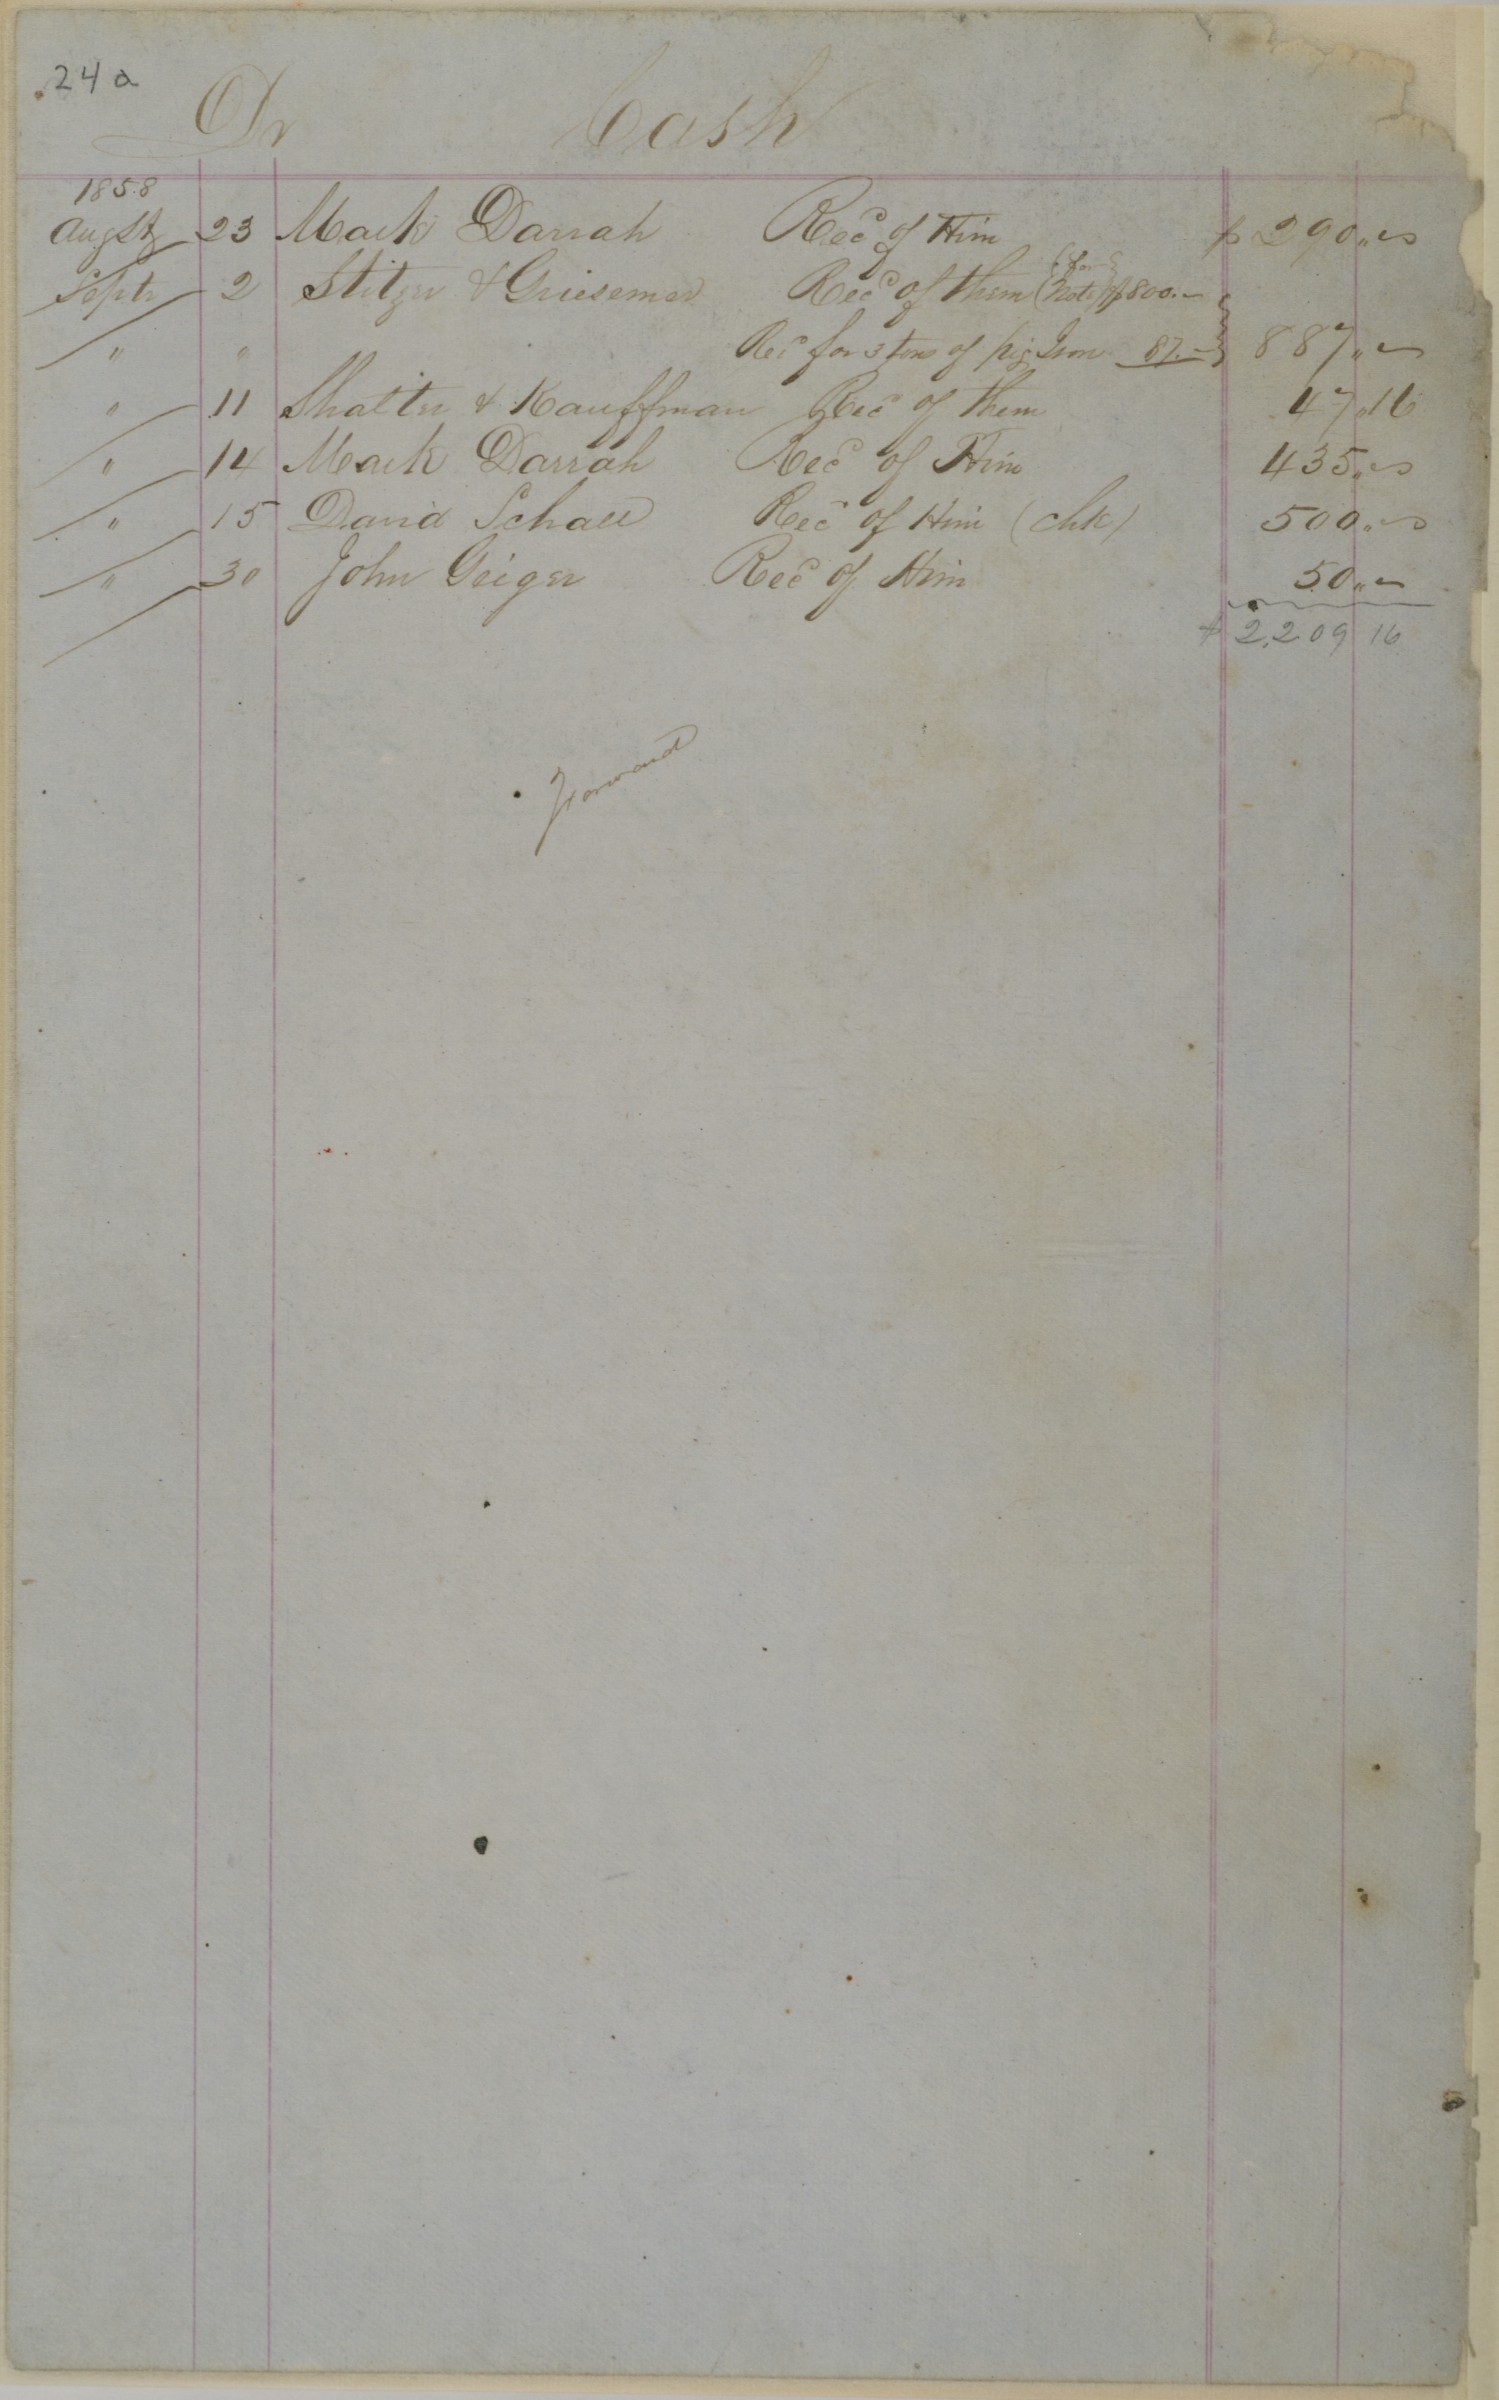 24a
Dr Cash
1858
Augst 23 Mark Darrah Rec'd of Him $ 290 " —
Septr 2 Stitzer & Griesemer Rec'd of them (Note) $800.—
" " Rec'd for 3 tons of pig Iron 87.— 887 " —
" 11 Shatter & Kauffman Rec'd of them 47 " 16
" 14 Mark Darrah Rec'd of Him 435 " —
" 15 David Schall Rec'd of Him (chk) 500 " —
" 30 John Geiger Rec'd of Him 50 " —
$ 2,209 16
Forward